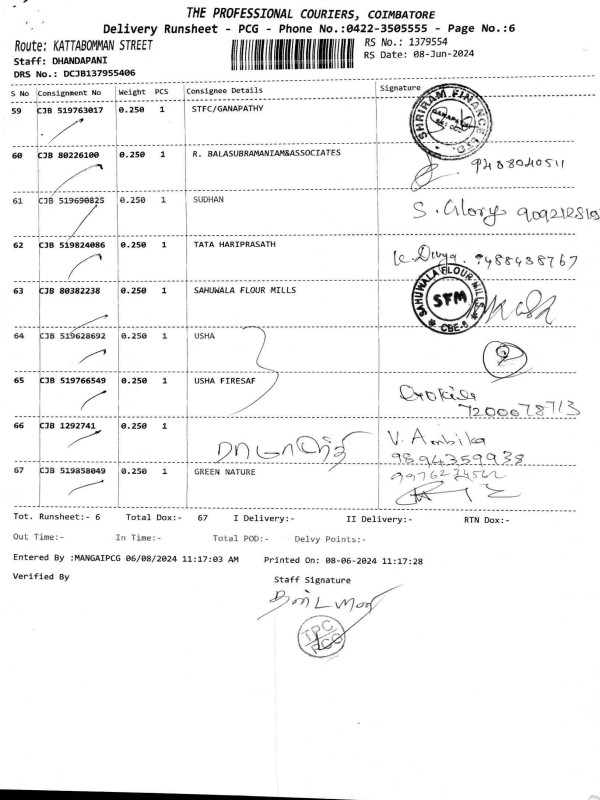 THE PROFESSIONAL COURIERS, COIMBATORE
Delivery Runsheet - PCG - Phone No.:0422-3505555 - Page No.:6
Route: KATTABOMMAN STREET RS No.: 1379554
Staff: DHANDAPANI RS Date: 08-Jun-2024
DRS No.: DCJB137955406
S No Consignment No Weight PCS Consignee Details Signature
59 CJB 519763017 0.250 1 STFC/GANAPATHY
SHRIRAM FINANCE LTD.
60 CJB 80226100 0.250 1 R. BALASUBRAMANIAM&ASSOCIATES
9488040511
61 CJB 519690825 0.250 1 SUDHAN
S. Glory
62 CJB 519824086 0.250 1 TATA HARIPRASATH
K. Divya 9488438767
63 CJB 80382238 0.250 1 SAHUWALA FLOUR MILLS
SAHUWALA FLOUR MILLS SFM CBE-6
64 CJB 519628692 0.250 1 USHA
2
65 CJB 519766549 0.250 1 USHA FIRESAF
Gokila
7200678713
66 CJB 1292741 0.250 1
V. Ambika
9894359938
67 CJB 519858049 0.250 1 GREEN NATURE
Tot. Runsheet:- 6 Total Dox:- 67 I Delivery:- II Delivery:- RTN Dox:-
Out Time:- In Time:- Total POD:- Delvy Points:-
Entered By :MANGAIPCG 06/08/2024 11:17:03 AM Printed On: 08-06-2024 11:17:28
Verified By Staff Signature
TPC
PCG